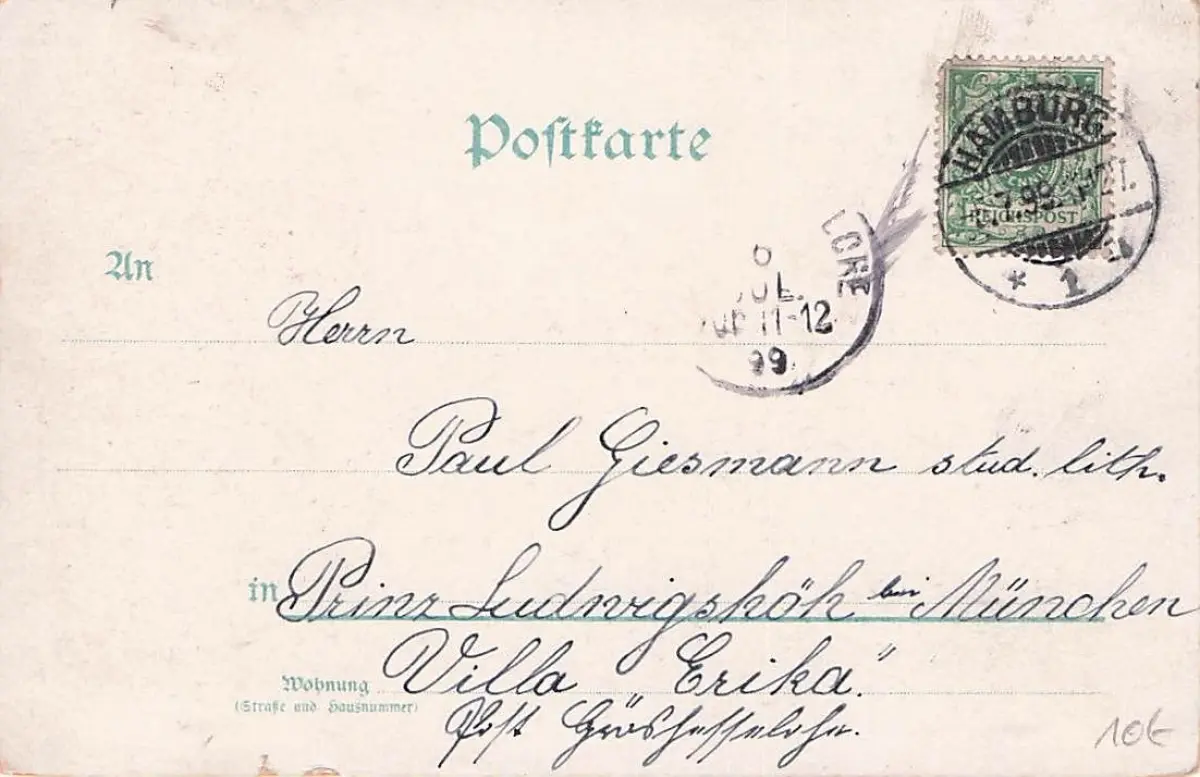 Postkarte
HAMBURG
7.99
REICHSPOST
* 1
LOHE
JUL.
11-12
99.
An
Herrn
Paul Giesmann stud. lith.
in Prinz Ludwigshöh bei München
Wohnung
(Straße und Hausnummer)
Villa "Erika."
Post Grosshesselohe.
10€